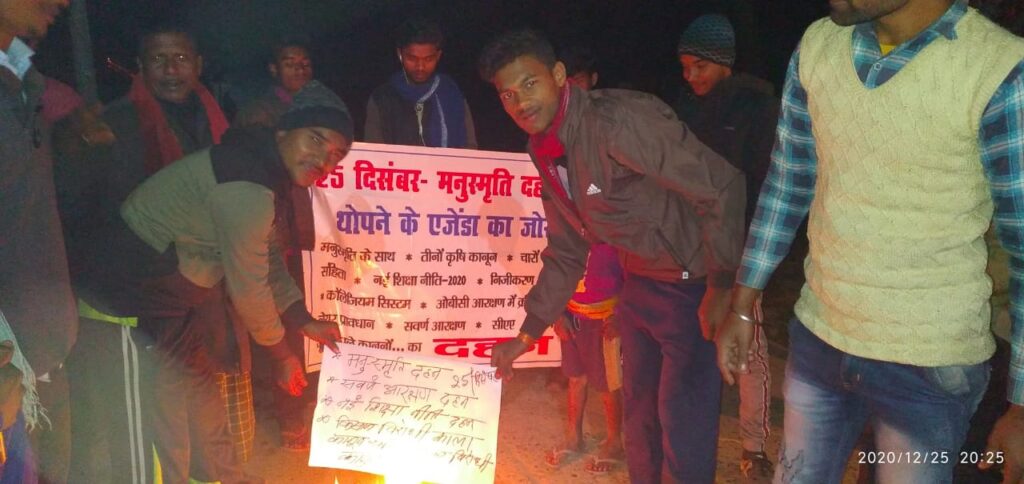 25 दिसंबर- मनुस्मृति दह
थोपने के एजेंडा का जो
मनुस्मृति के साथ * तीनों कृषि कानून * चारों
संहिता * नई शिक्षा नीति-2020 * निजीकरण
* कॉलेजियम सिस्टम * ओबीसी आरक्षण में क्री
प्रावधान * सवर्ण आरक्षण * सीएए
कानूनों... का दहन
मनुस्मृति दहन 25
* सवर्ण आरक्षण दहन
* नई शिक्षा नीति दहन
* किसान विरोधी काला
adidas
2020/12/25 20:25